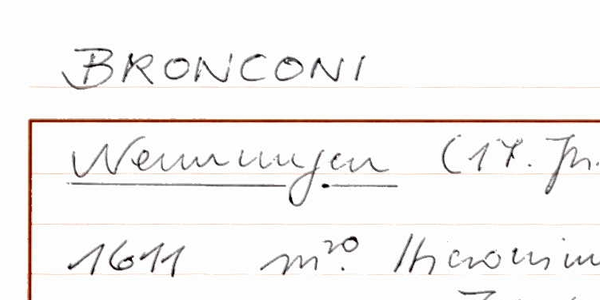 BRONCONI
Nennungen (17. Jh.
1611 mro. Hieronim